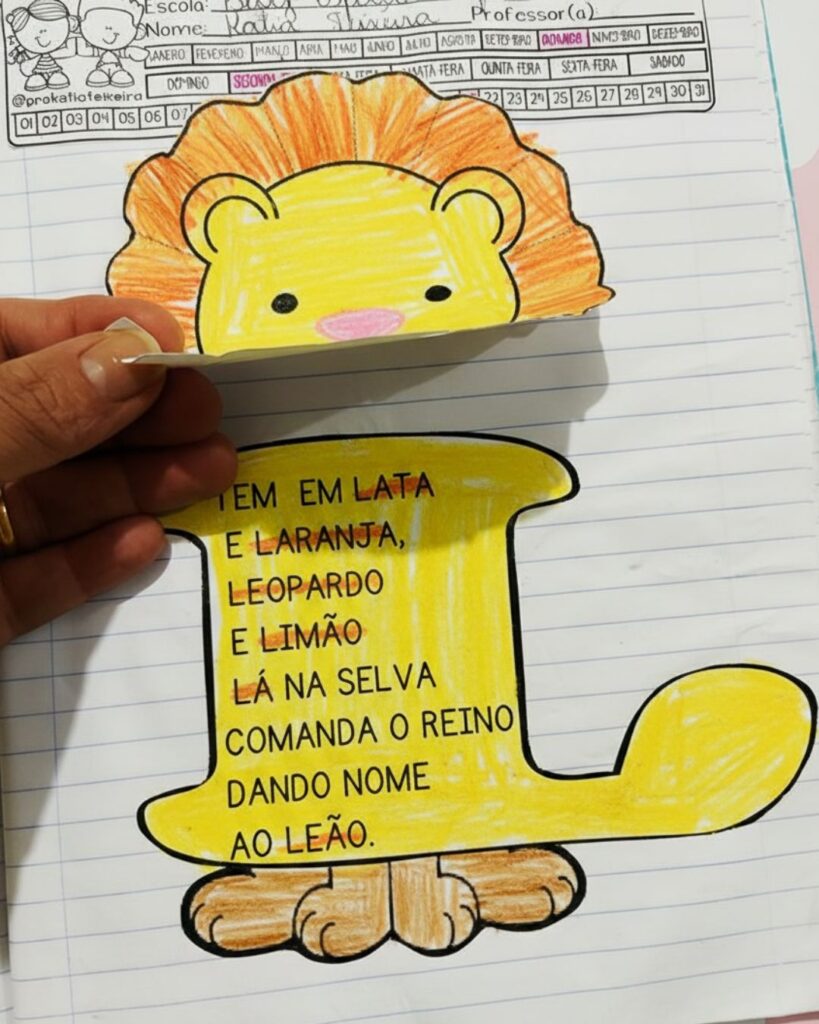 Escola:
Nome: Katia Teixeira Professor(a)
JANEIRO FEVEREIRO MARÇO ABRIL MAIO JUNHO JULHO AGOSTO SETEMBRO NOVEMBRO DEZEMBRO
DOMINGO QUARTA FEIRA QUINTA FEIRA SEXTA FEIRA SÁBADO
@prokatiateixeira
01 02 03 04 05 06 07 22 23 24 25 26 27 28 29 30 31
TEM EM LATA
E LARANJA,
LEOPARDO
E LIMÃO
LÁ NA SELVA
COMANDA O REINO
DANDO NOME
AO LEÃO.